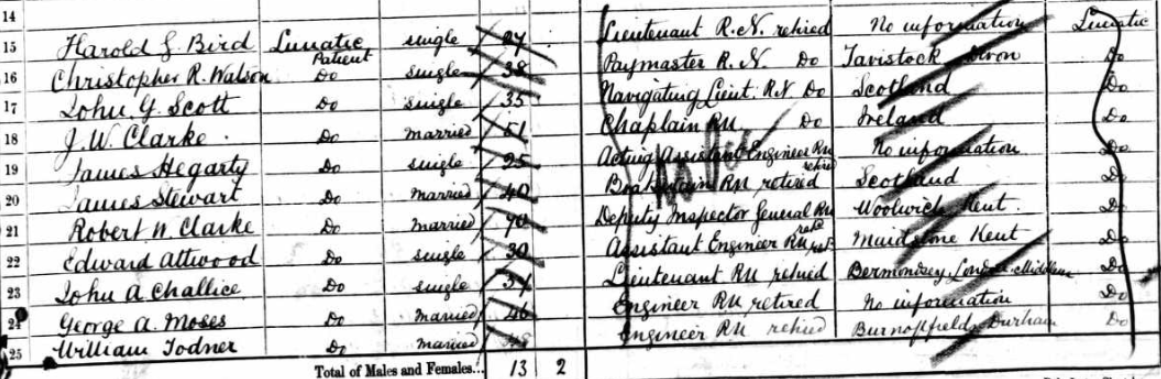 14
15 Harold G. Bird Lunatic Patient single 27 Lieutenant R.N. retired No information Lunatic
16 Christopher R. Watson Do single 38 Paymaster R.N. Do Tavistock Devon Do
17 John G. Scott Do single 35 Navigating Lieut. RN Do Scotland Do
18 J. W. Clarke. Do married 51 Chaplain RN Do Ireland Do
19 James Hegarty Do single 25 Acting Assistant Engineer RN retired No information Do
20 James Stewart Do Married 40 Boatswain RN retired Scotland Do
21 Robert W. Clarke Do Married 70 Deputy Inspector General RN Woolwich Kent. Do
22 Edward Attwood Do single 30 Assistant Engineer RN Maidstone Kent Do
23 John A Challice Do single Lieutenant RN retired Bermondsey London Do
24 George A. Moses Do Married 46 Engineer RN retired No information Do
25 William Todner Do Married Engineer RN retired Burnopfield Durham Do
Total of Males and Females... 13 2